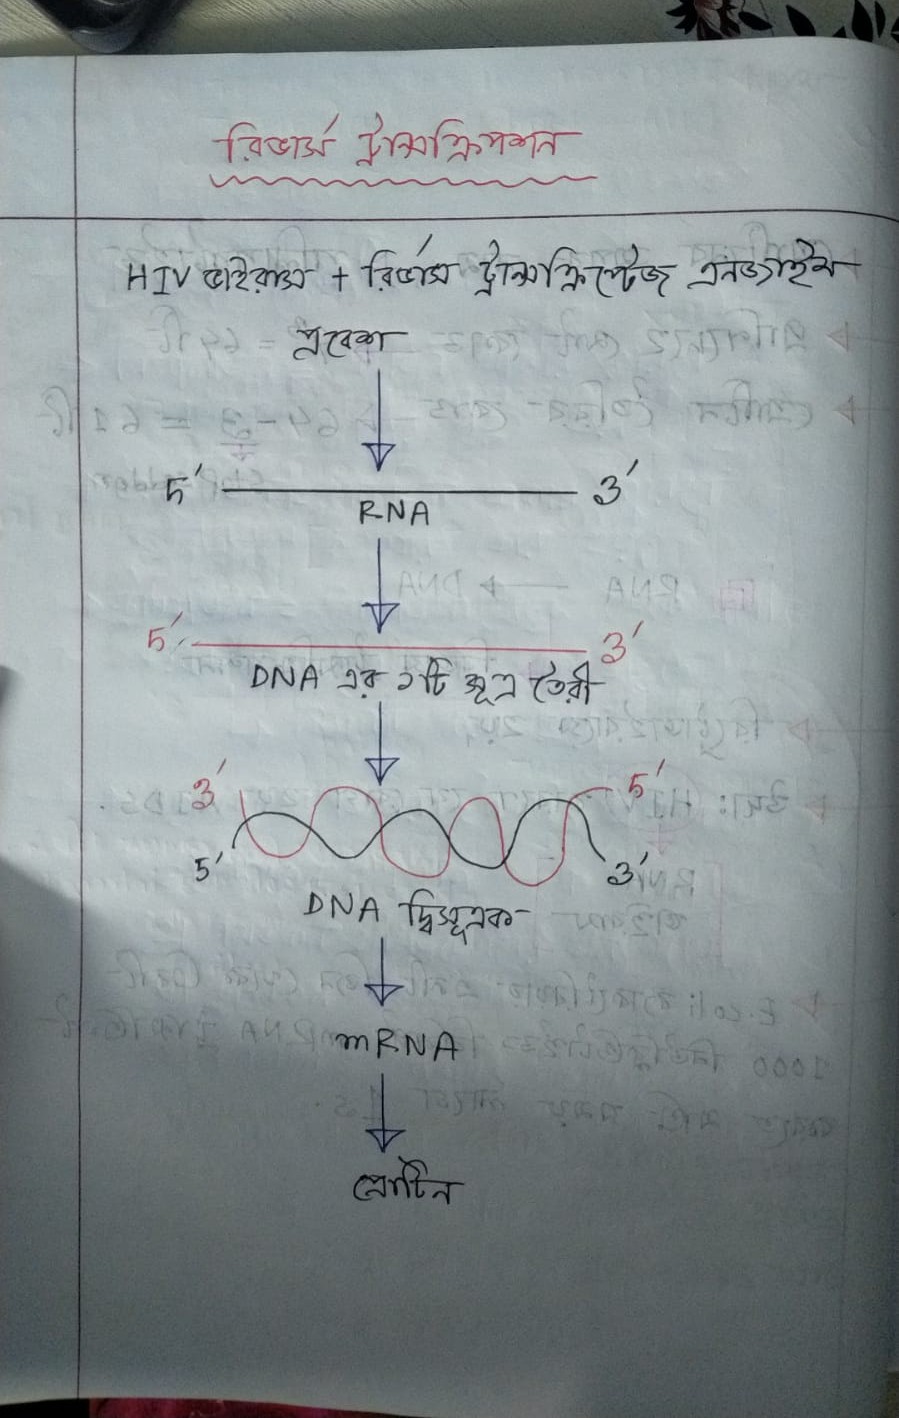 রিভার্স ট্রান্সক্রিপশন
HIV ভাইরাস + রিভার্স ট্রান্সক্রিপ্টেজ এনজাইম
প্রবেশ
5′ 3′
RNA
5′ 3′
DNA এর ১টি সূত্র তৈরী
3′ 5′
5′ 3′
DNA দ্বিসূত্রক
mRNA
প্রোটিন